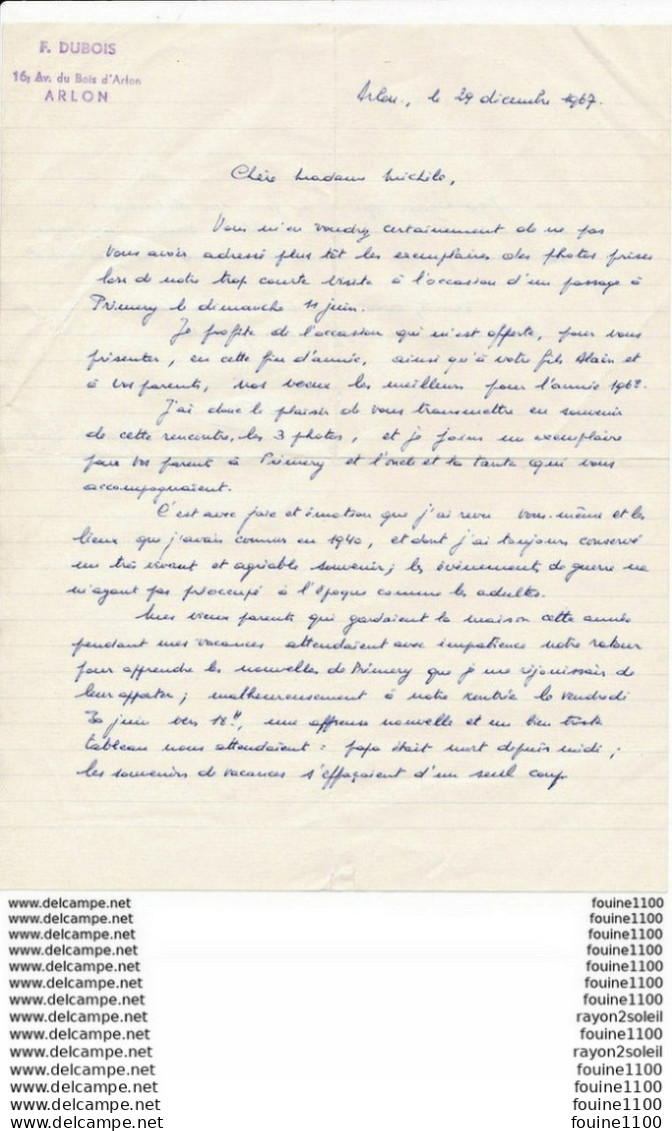 F. DUBOIS
16, Av. du Bois d'Arlon
ARLON
Arlon, le 29 décembre 1967.
Chère Madame Michèle,
Vous m'en voudrez certainement de ne pas
vous avoir adressé plus tôt les exemplaires des photos prises
lors de notre trop courte visite à l'occasion d'un passage à
Prémery le dimanche 11 juin.
Je profite de l'occasion qui m'est offerte, pour vous
présenter, en cette fin d'année, ainsi qu'à votre fils Alain et
à vos parents, nos voeux les meilleurs pour l'année 1968.
J'ai donc le plaisir de vous transmettre en souvenir
de cette rencontre, les 3 photos, et je joins un exemplaire
pour vos parents à Prémery et l'oncle et la tante qui vous
accompagnaient.
C'est avec joie et émotion que j'ai revu vous-même et les
lieux que j'avais connus en 1940, et dont j'ai toujours conservé
un très vivant et agréable souvenir; les évènements de guerre ne
m'ayant pas préoccupé à l'époque comme les adultes.
Mes vieux parents qui gardaient la maison cette année
pendant mes vacances attendaient avec impatience notre retour
pour apprendre les nouvelles de Prémery que je me réjouissais de
leur apporter; malheureusement à notre rentrée le vendredi
30 juin vers 18H, une affreuse nouvelle et un bien triste
tableau nous attendaient : papa était mort depuis midi;
les souvenirs de vacances s'effaçaient d'un seul coup
www.delcampe.net fouine1100
www.delcampe.net fouine1100
www.delcampe.net fouine1100
www.delcampe.net fouine1100
www.delcampe.net fouine1100
www.delcampe.net fouine1100
www.delcampe.net fouine1100
www.delcampe.net rayon2soleil
www.delcampe.net fouine1100
www.delcampe.net rayon2soleil
www.delcampe.net fouine1100
www.delcampe.net fouine1100
www.delcampe.net fouine1100
www.delcampe.net fouine1100